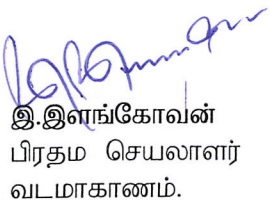 இ.இளங்கோவன்
பிரதம செயலாளர்
வடமாகாணம்.